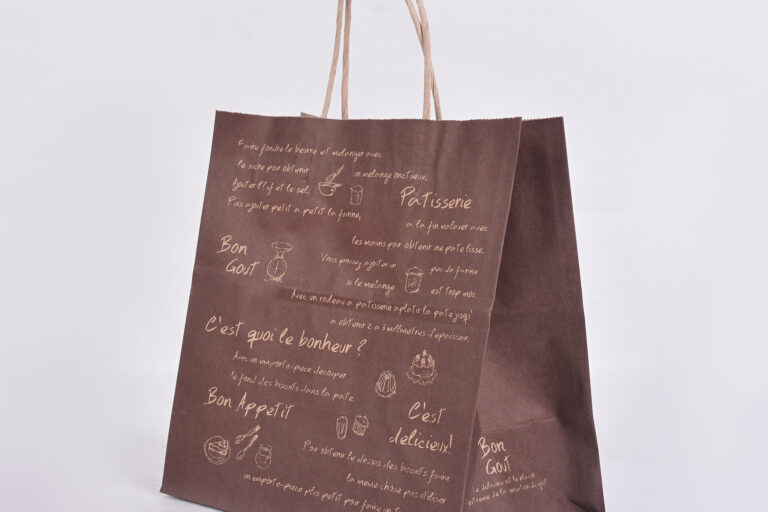 Faire fondre le beurre et melanger avec
le sucre pour obtenir un melange onctueux.
Ajouter l'uf et le sel.
Puis ajouter petit a petit la farine,
Pâtisserie
a la fin malaxer avec
les mains pour obtenir une pate lisse.
Bon
Gout
Vous pouvez ajouter un peu de farine
si le melange est trop mou.
Avec un rouleau a patisserie aplatir la pate jusqu'
a obtenir 2 a 3 millimetres d'epaisseur.
C'est quoi le bonheur ?
Avec un emporte-piece decouper
le fond des biscuits dans la pate.
Bon Appetit
C'est
delicieux!
Pour obtenir le dessus des biscuits faire
la meme chose puis utiliser
un emporte-piece plus petit pour faire un t
Bon
Gout
Le delicieux et le plaisir